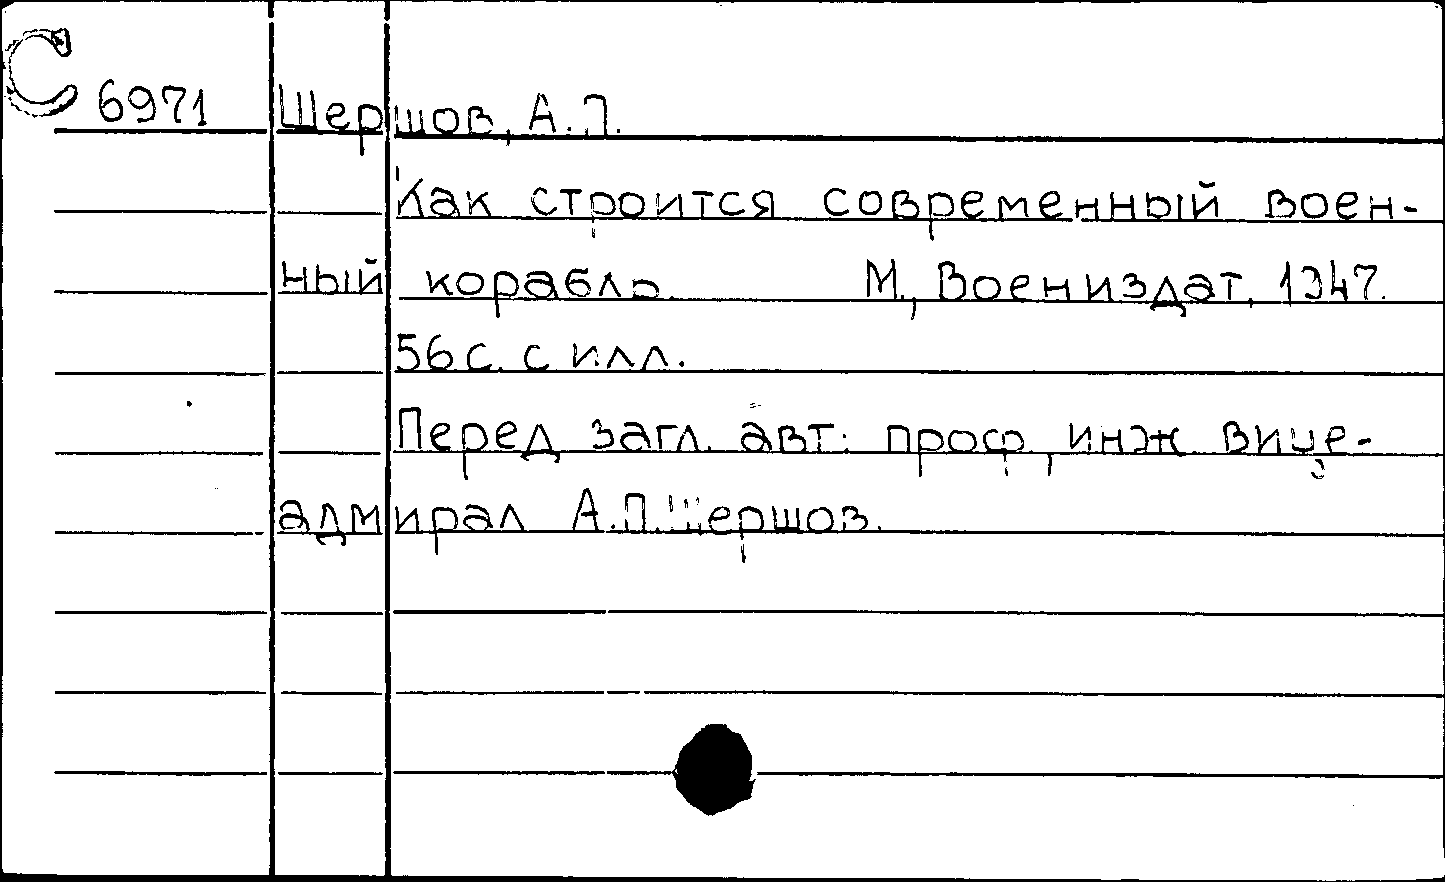 С 6971 Шершов, А.П.
Как строится современный воен-
ный корабль. М., Воениздат, 1947.
56 с. с илл.
Перед загл. авт: проф., инж. вице-
адмирал А.П.Шершов.